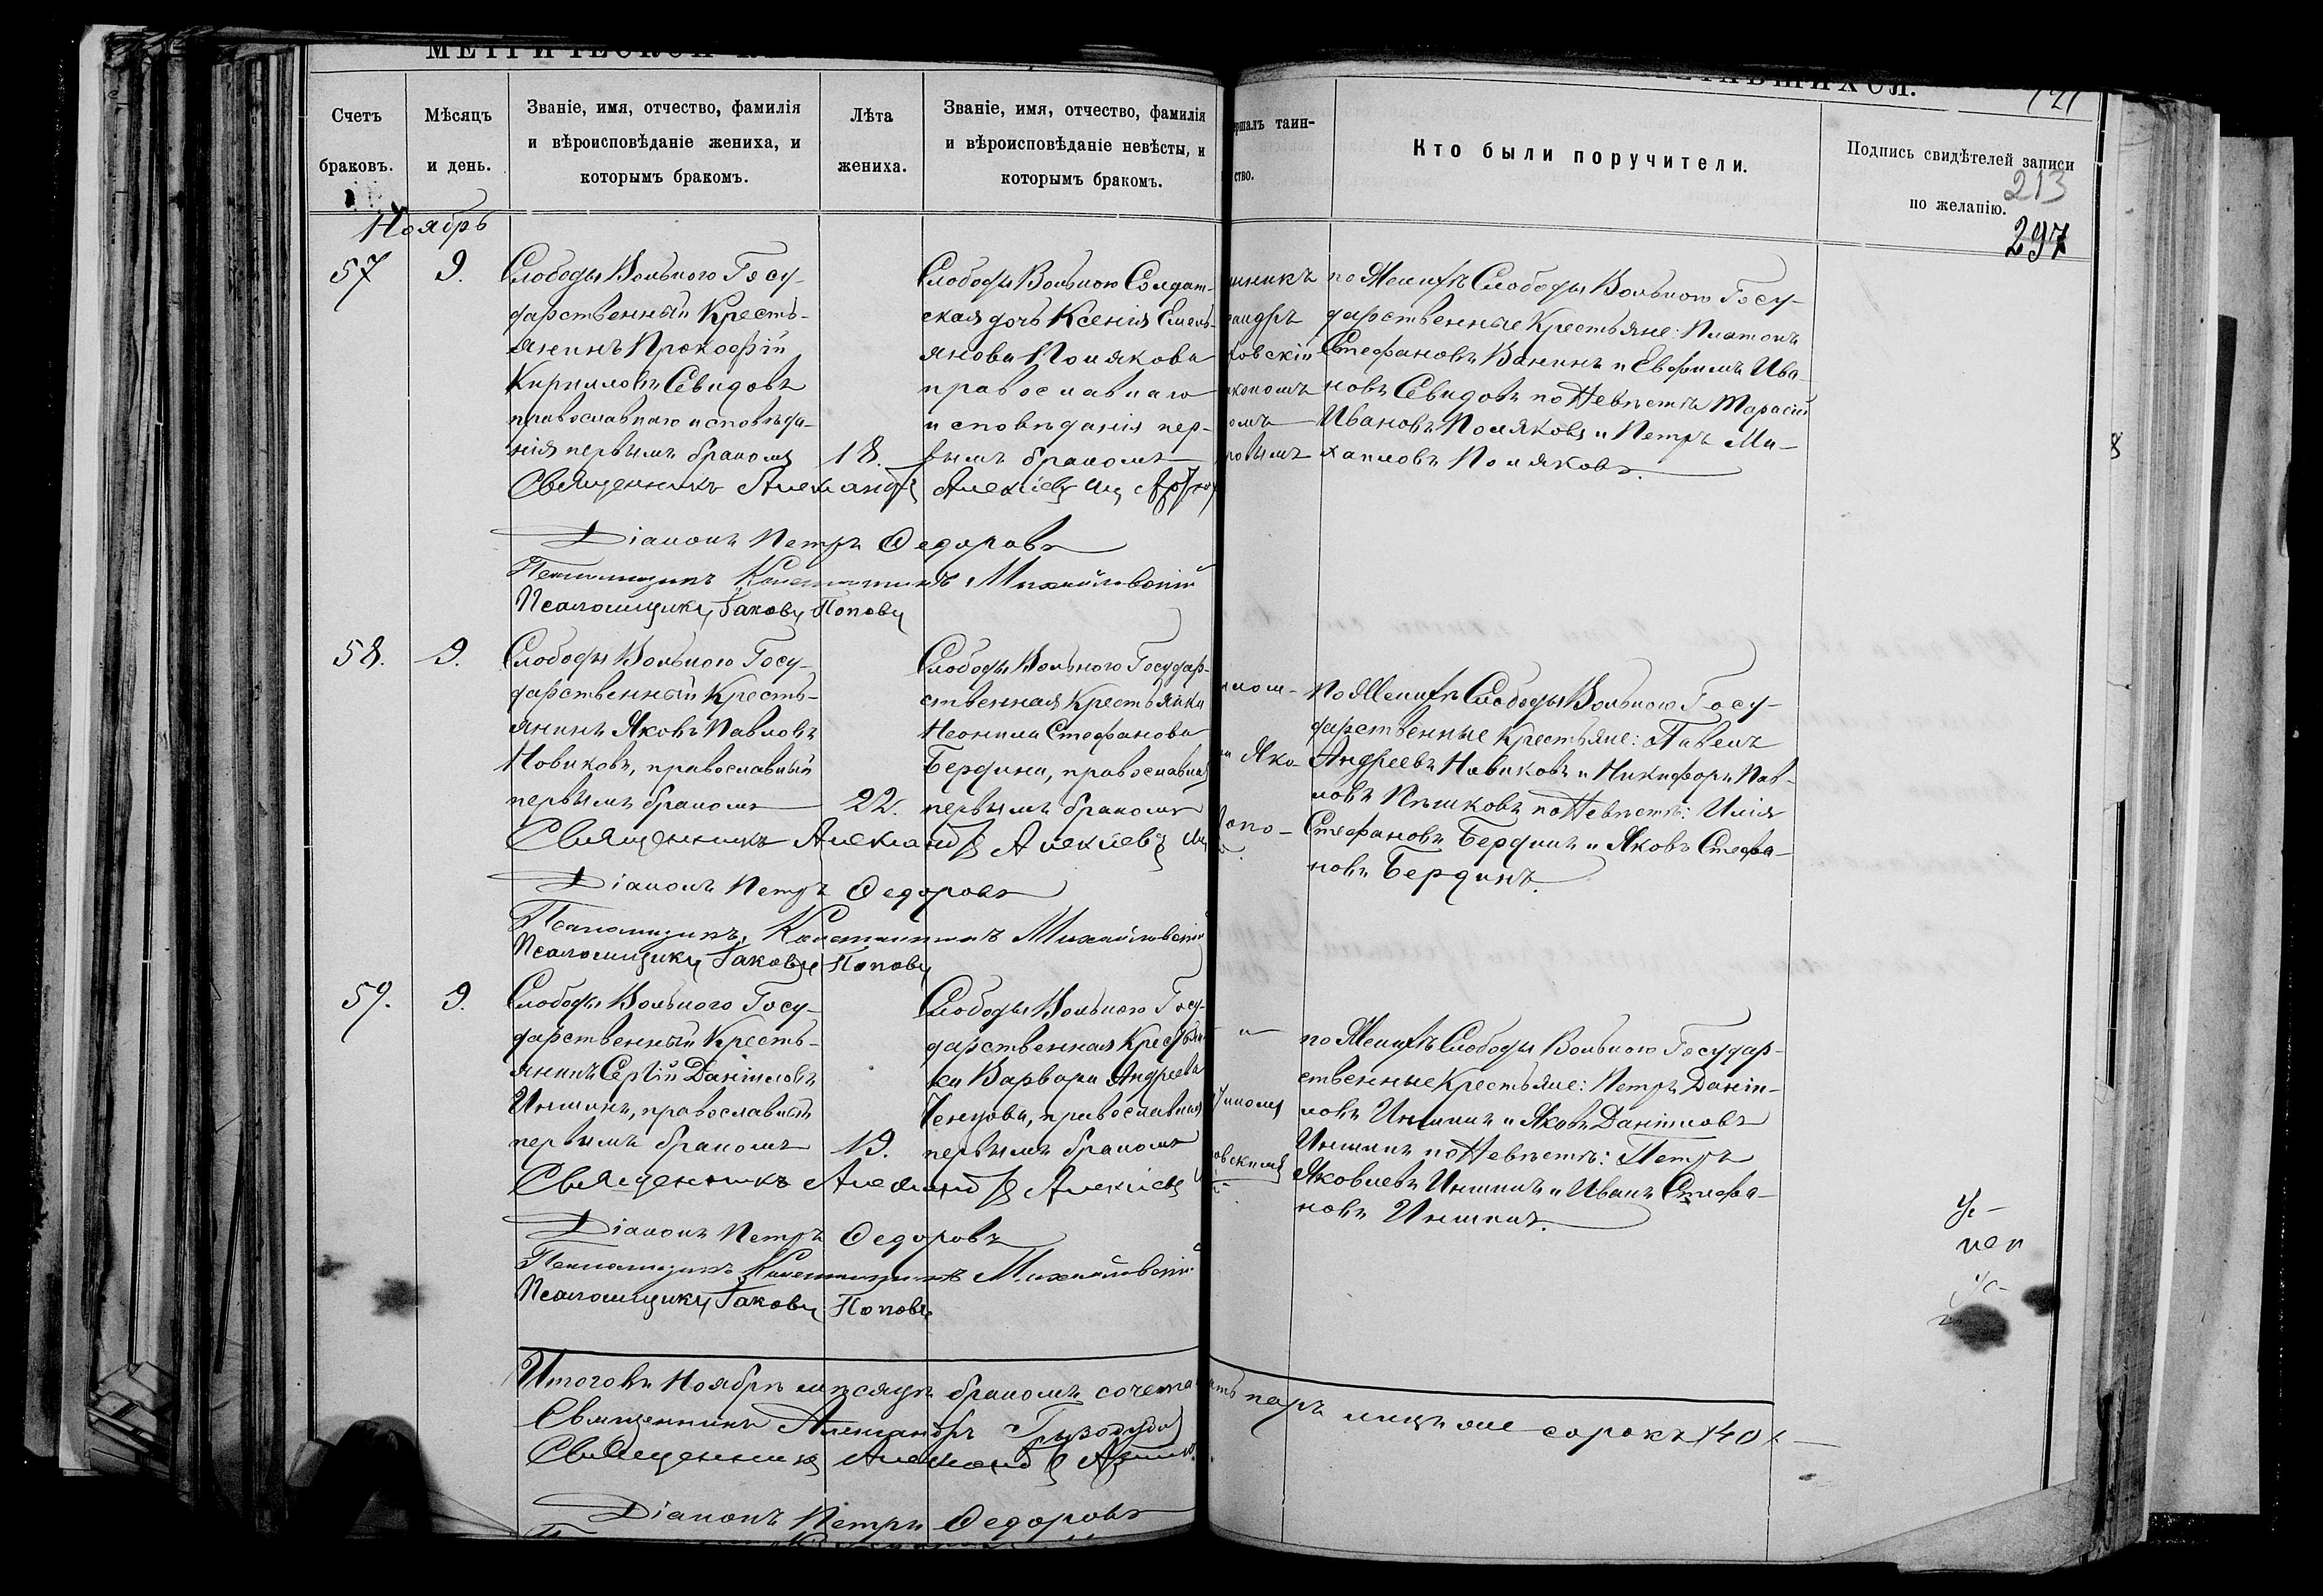 Счетъ
браковъ.
Мѣсяцъ
и день.
Званіе, имя, отчество, фамилія
и вѣроисповѣданіе жениха, и
которымъ бракомъ.
Лѣта
жениха.
Званіе, имя, отчество, фамилія
и вѣроисповѣданіе невѣсты, и
которымъ бракомъ.
таин-
ство.
Кто были поручители.
Подпись свидѣтелей записи
по желанію.
213
297
Ноябрь
57
9.
Слободы Вольного Госу-
дарственный Кресть-
янинъ Прокофій
Кирилловъ Севидовъ
православнаго исповѣда-
нія первымъ бракомъ
18.
Слободы Вольного Солдат-
ская дочь Ксенія Емель-
янова Полякова
православнаго
исповѣданія пер-
вымъ бракомъ
по Женихѣ Слободы Вольного Госу-
дарственные Крестьяне: Платонъ
Стефановъ Ванинъ и Евфимъ Ива-
новъ Севидовъ по Невѣстѣ Тарасій
Ивановъ Поляковъ и Петръ Ми-
хаиловъ Поляковъ.
Священникъ Александръ Алексіевъ
Діаконъ Петръ Федоровъ
Псаломщикъ Константинъ Михайловскій
Псаломщикъ Іаковъ Поповъ
58.
9.
Слободы Вольного Госу-
дарственный Кресть-
янинъ Яковъ Павловъ
Новиковъ, православный
первымъ бракомъ
22.
Слободы Вольного Государ-
ственная Крестьянка
Неонила Стефанова
Бердина, православная
первымъ бракомъ
По Женихѣ Слободы Вольного Госу-
дарственные Крестьяне: Павелъ
Андреевъ Новиковъ и Никифоръ Пав-
ловъ Пѣшковъ по Невѣстѣ: Илія
Стефановъ Бердинъ и Яковъ Стефа-
новъ Бердинъ.
Священникъ Александръ Алексіевъ
Діаконъ Петръ Федоровъ
Псаломщикъ Константинъ Михайловскій
Псаломщикъ Іаковъ Поповъ
59.
9.
Слободы Вольного Госу-
дарственный Кресть-
янинъ Сергій Даніиловъ
Иншинъ, православный
первымъ бракомъ
19.
Слободы Вольного Госу-
дарственная Крестьян-
ка Варвара Андреева
Ченцова, православная
первымъ бракомъ
по Женихѣ Слободы Вольного Государ-
ственные Крестьяне: Петръ Даніи-
ловъ Иншинъ и Яковъ Даніиловъ
Иншинъ по Невѣстѣ: Петръ
Яковлевъ Иншинъ и Иванъ Стефа-
новъ Иншинъ.
Священникъ Александръ Алексіевъ
Діаконъ Петръ Федоровъ
Псаломщикъ Константинъ Михайловскій
Псаломщикъ Іаковъ Поповъ
Итого въ Ноябрѣ мѣсяцѣ бракомъ паръ лицъ же сорокъ (40)
Священникъ Александръ
Священникъ Александръ
Діаконъ Петръ Федоровъ